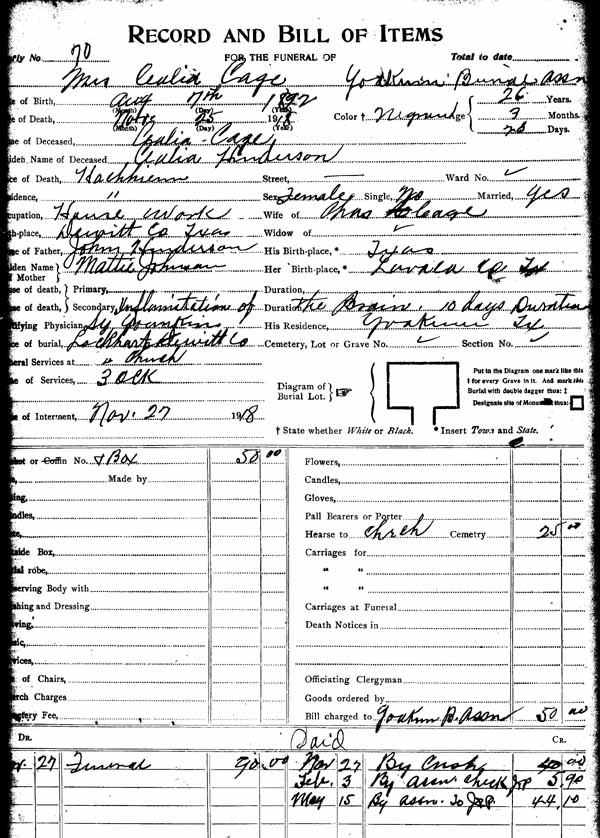 RECORD AND BILL OF ITEMS
rly No 70 FOR THE FUNERAL OF Total to date
Mrs Cealia Cage Yoakum Burial Assn
e of Birth, Aug (Month) 7th (Day) 1892 (Year) 26 Years.
e of Death, Nov (Month) 25 (Day) 1918 (Year) Color † Age 3 Months.
Days.
e of Deceased, Cealia Cage
iden Name of Deceased Cealia Henderson
ce of Death, Street, Ward No. ✓
idence, " Sex Female Single, No Married, Yes
cupation, House Work Wife of Chas
h-place, Dewitt Co Texas Widow of ✓
e of Father, John Henderson His Birth-place,* Texas
iden Name of Mother Mattie Johnson Her Birth-place,* Lavaca Co Tx
se of death, Primary, Duration,
se of death, Secondary, Inflamitation of Duration the Brain. 10 days Duration
ifying Physician His Residence, Yoakum Tx
ce of burial, Lockhart Dewitt Co Cemetery, Lot or Grave No. ✓ Section No. ✓
eral Services at " Church
e of Services, 3 ock
Diagram of Burial Lot. ☞
Put in the Diagram one mark like this
I for every Grave in it. And mark this
Burial with double dagger thus: ‡
Designate site of Monument thus: □
e of Interment, Nov. 27 1918
† State whether White or Black. * Insert Town and State.
ket or Coffin No. & Box 50 00 Flowers,
Made by Candles,
ing, Gloves,
ndles, Pall Bearers or Porter
te, Hearse to Chrch Cemetry 25 00
side Box, Carriages for
ial robe, " "
serving Body with " "
shing and Dressing Carriages at Funeral
ving, Death Notices in
sic,
vices,
e of Chairs, Officiating Clergyman
rch Charges Goods ordered by
etery Fee, Bill charged to Yoakum B. Assn 50 00
DR. Paid CR.
27 Funeral 90.00 Nov 27 By Cash 40.00
Feb. 3 By assn check JP 5.90
May 15 By assn. To J&P. 44.10